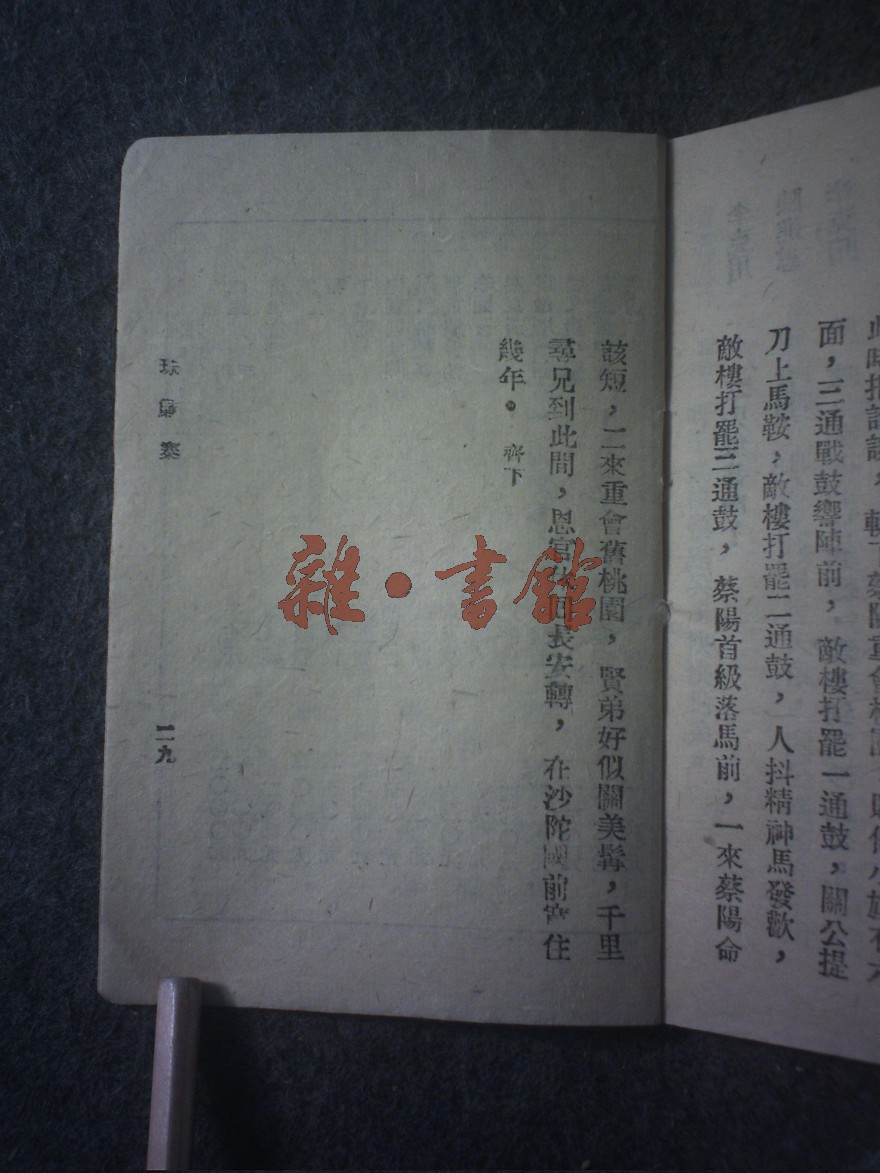 面，三通戰鼓響陣前，敵樓打罷一通鼓，關公提
刀上馬鞍，敵樓打罷二通鼓，人抖精神馬發歡，
敵樓打罷三通鼓，蔡陽首級落馬前，一來蔡陽命
該短，二來重會舊桃園，賢弟好似關美髯，千里
尋兄到此間，恩官 回長安轉，在沙陀國前 住
幾年。 齊下
珠簾寨
二九
雜·書館